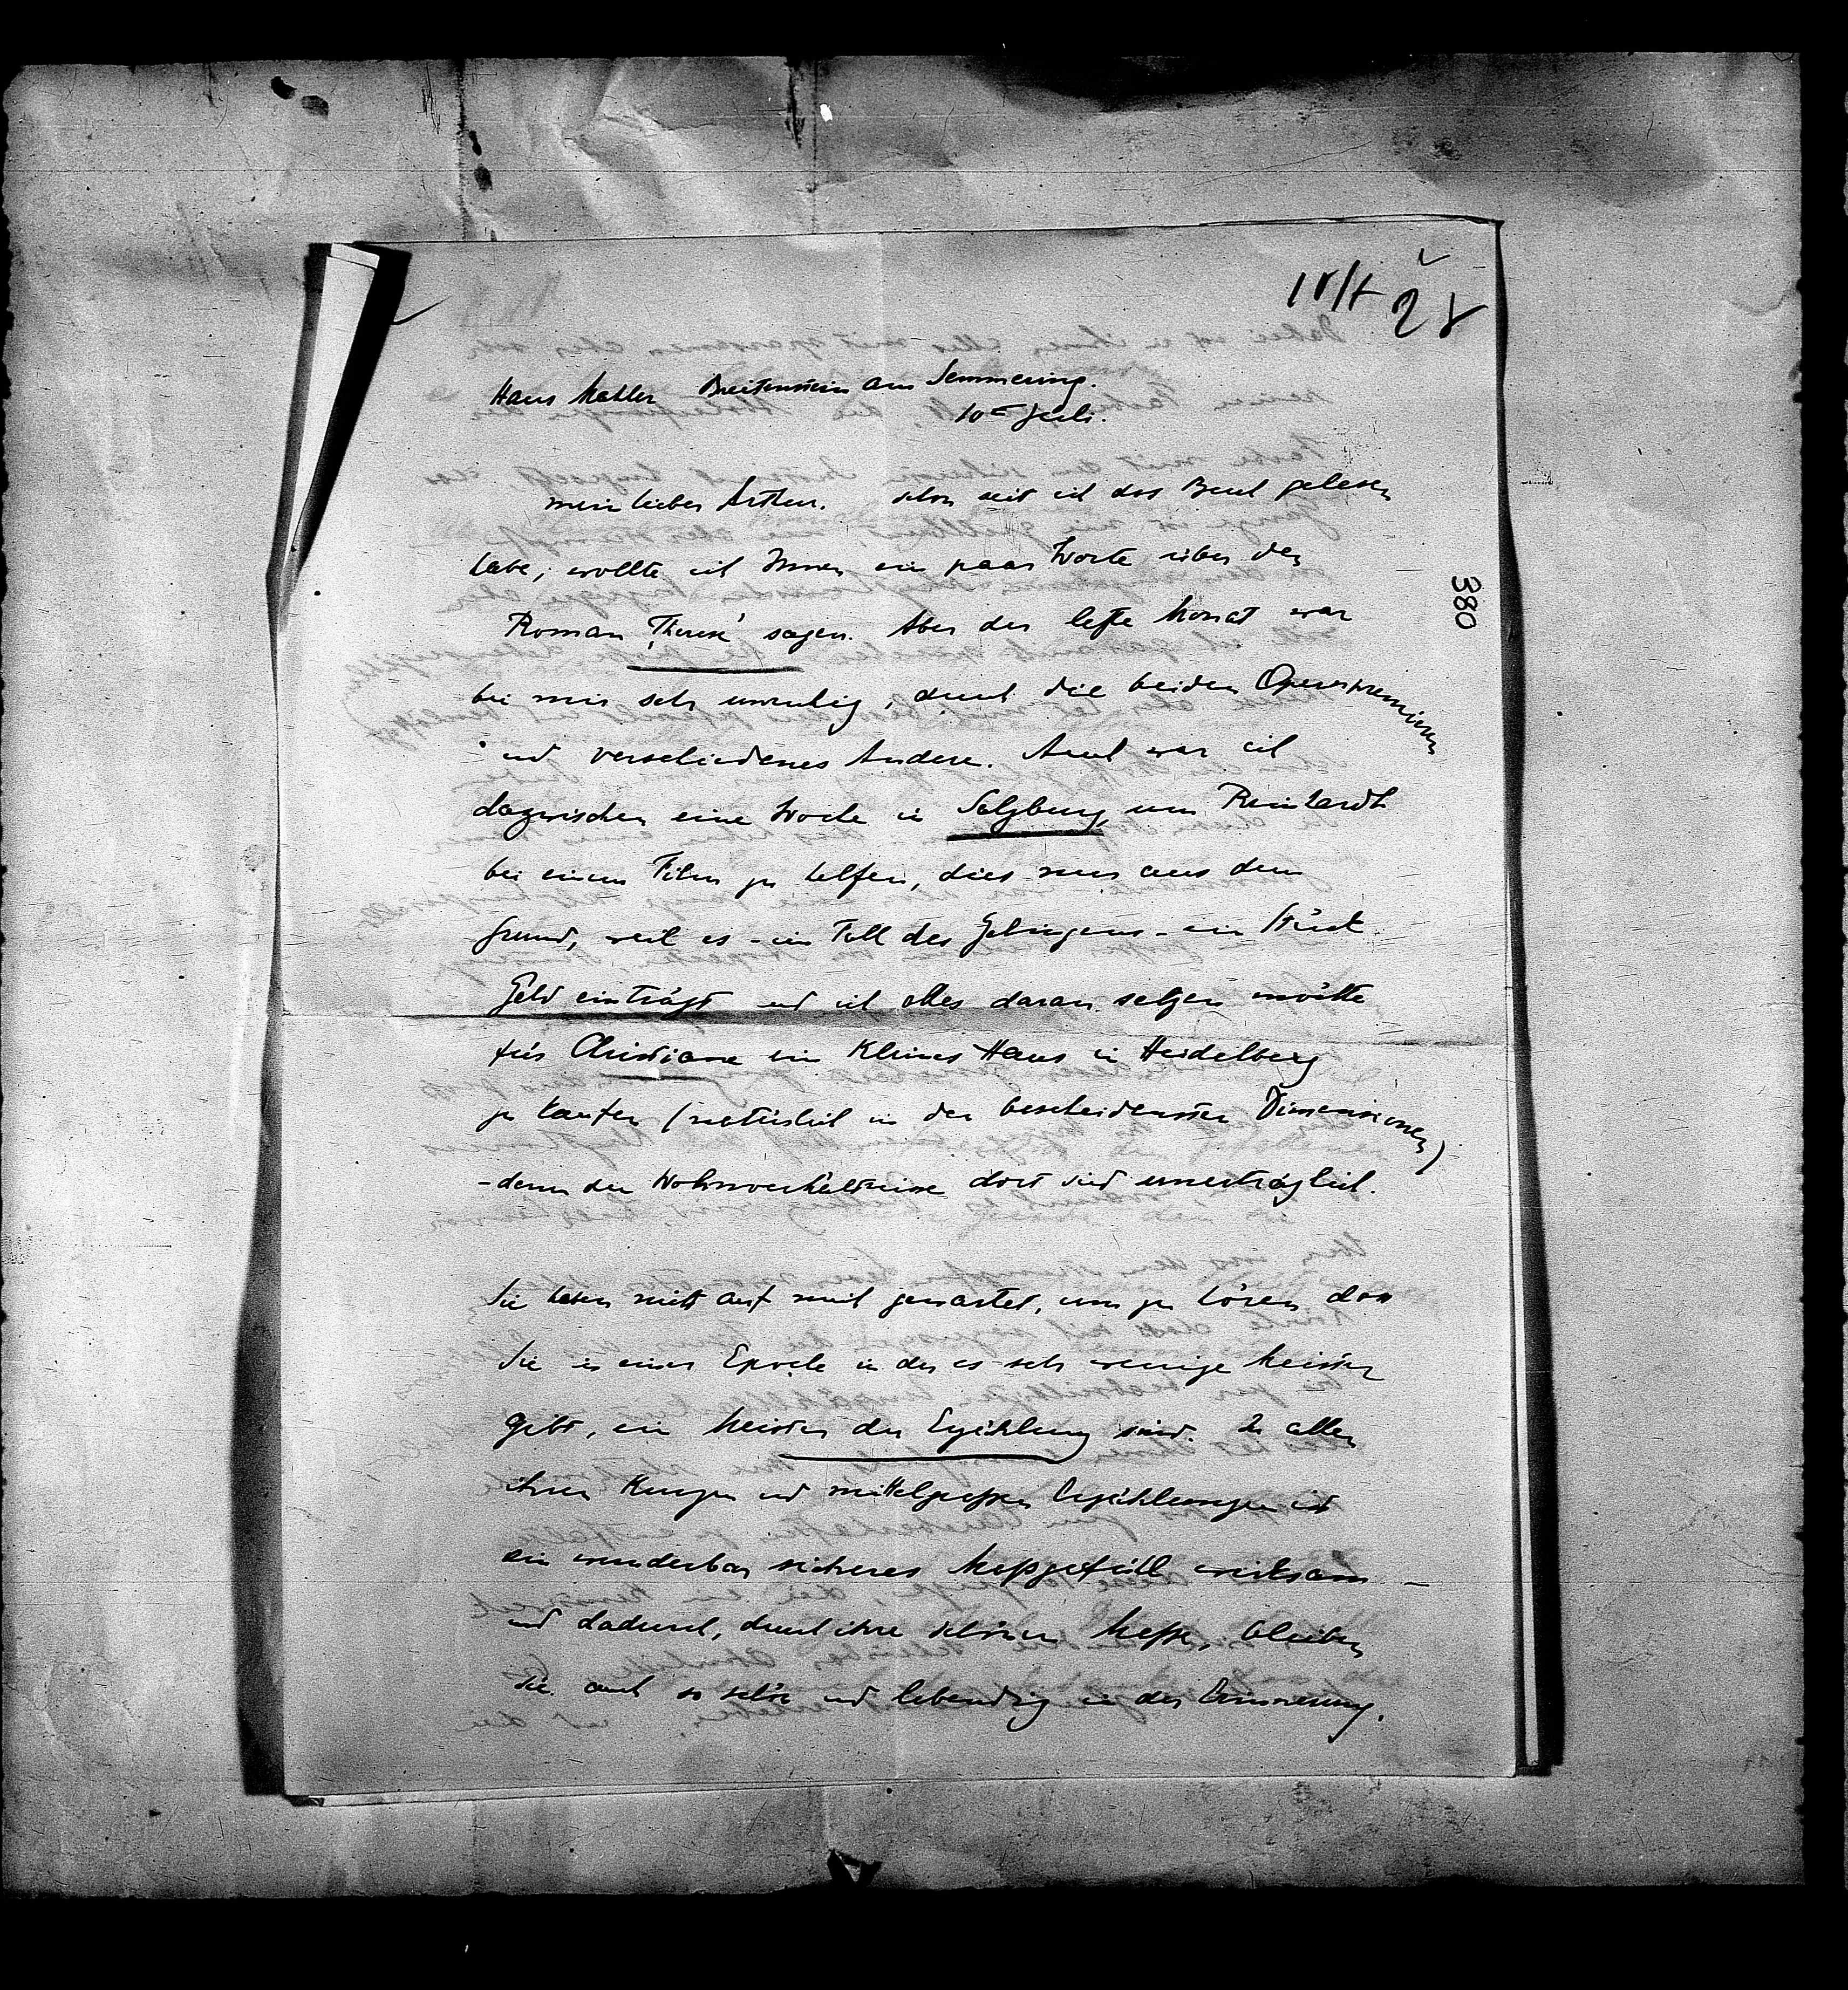 10/7 28
380
Haus Mahler Breitenstein am Semmering.
10ten Juli.
mein lieber Arthur. schon seit ich das Buch gelesen
habe, wollte ich Ihnen ein paar Worte über den
Roman „Therese“ sagen. Aber der letzte Monat war
bei mir sehr unruhig, durch die beiden Opernpremieren
und verschiedenes Andere. Auch war ich
dazwischen eine Woche in Salzburg, um Reinhardt
bei einem Film zu helfen, dies nur aus dem
Grund, weil es – im Fall des Gelingens – ein Stück
Geld einträgt und ich alles daran setzen möchte
für Christiane ein kleines Haus in Heidelberg
zu kaufen (natürlich in den bescheidensten Dimensionen)
– denn die Wohnverhältnisse dort sind unerträglich.
Sie haben nicht auf mich gewartet, um zu hören dass
Sie in einer Epoche in der es sehr wenige Meister
gibt, ein Meister der Erzählung sind. In allen
ihren kurzen und mittelgroßen Erzählungen ist
ein wunderbar sicheres Maßgefühl wirksam –
und dadurch, durch ihre schönen Maße, bleiben
sie auch so schön und lebendig in der Erinnerung.